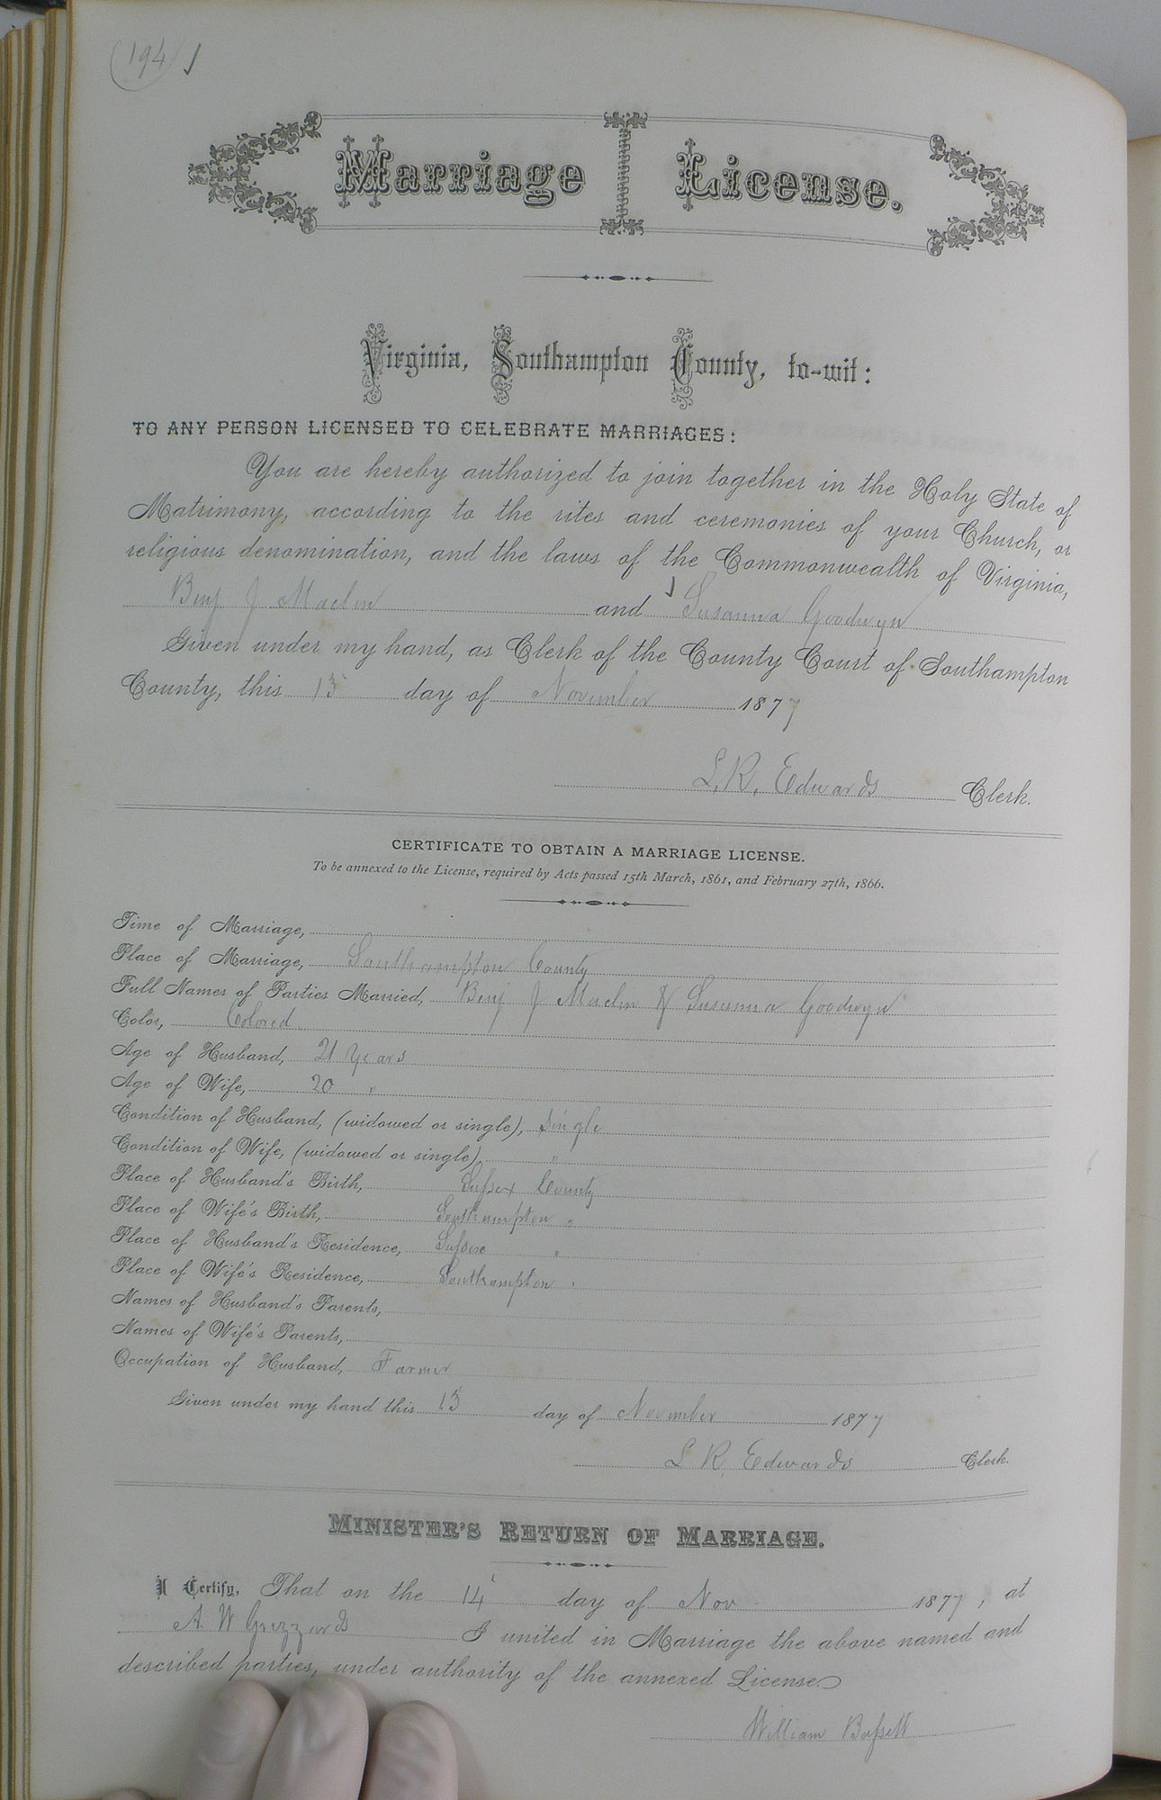 194
Marriage License.
Virginia, Southampton County, to-wit:
TO ANY PERSON LICENSED TO CELEBRATE MARRIAGES:
You are hereby authorized to join together in the Holy State of
Matrimony, according to the rites and ceremonies of your Church, or
religious denomination, and the laws of the Commonwealth of Virginia,
Benj J Maclin and Susanna Goodwyn
Given under my hand, as Clerk of the County Court of Southampton
County, this 13 day of November 1877
L. R. Edwards Clerk.
CERTIFICATE TO OBTAIN A MARRIAGE LICENSE.
To be annexed to the License, required by Acts passed 15th March, 1861, and February 27th, 1866.
Time of Marriage,
Place of Marriage, Southampton County
Full Names of Parties Married, Benj J Maclin & Susanna Goodwyn
Color, Colored
Age of Husband, 21 Years
Age of Wife, 20 "
Condition of Husband, (widowed or single), Single
Condition of Wife, (widowed or single), "
Place of Husband's Birth, Sussex County
Place of Wife's Birth, Southampton "
Place of Husband's Residence, Sussex "
Place of Wife's Residence, Southampton "
Names of Husband's Parents,
Names of Wife's Parents,
Occupation of Husband, Farmer
Given under my hand this 13 day of November 1877
L R. Edwards Clerk.
MINISTER'S RETURN OF MARRIAGE.
I Certify, That on the 14 day of Nov 1877, at
A. W Grizzards I united in Marriage the above named and
described parties, under authority of the annexed License.
William Bassett